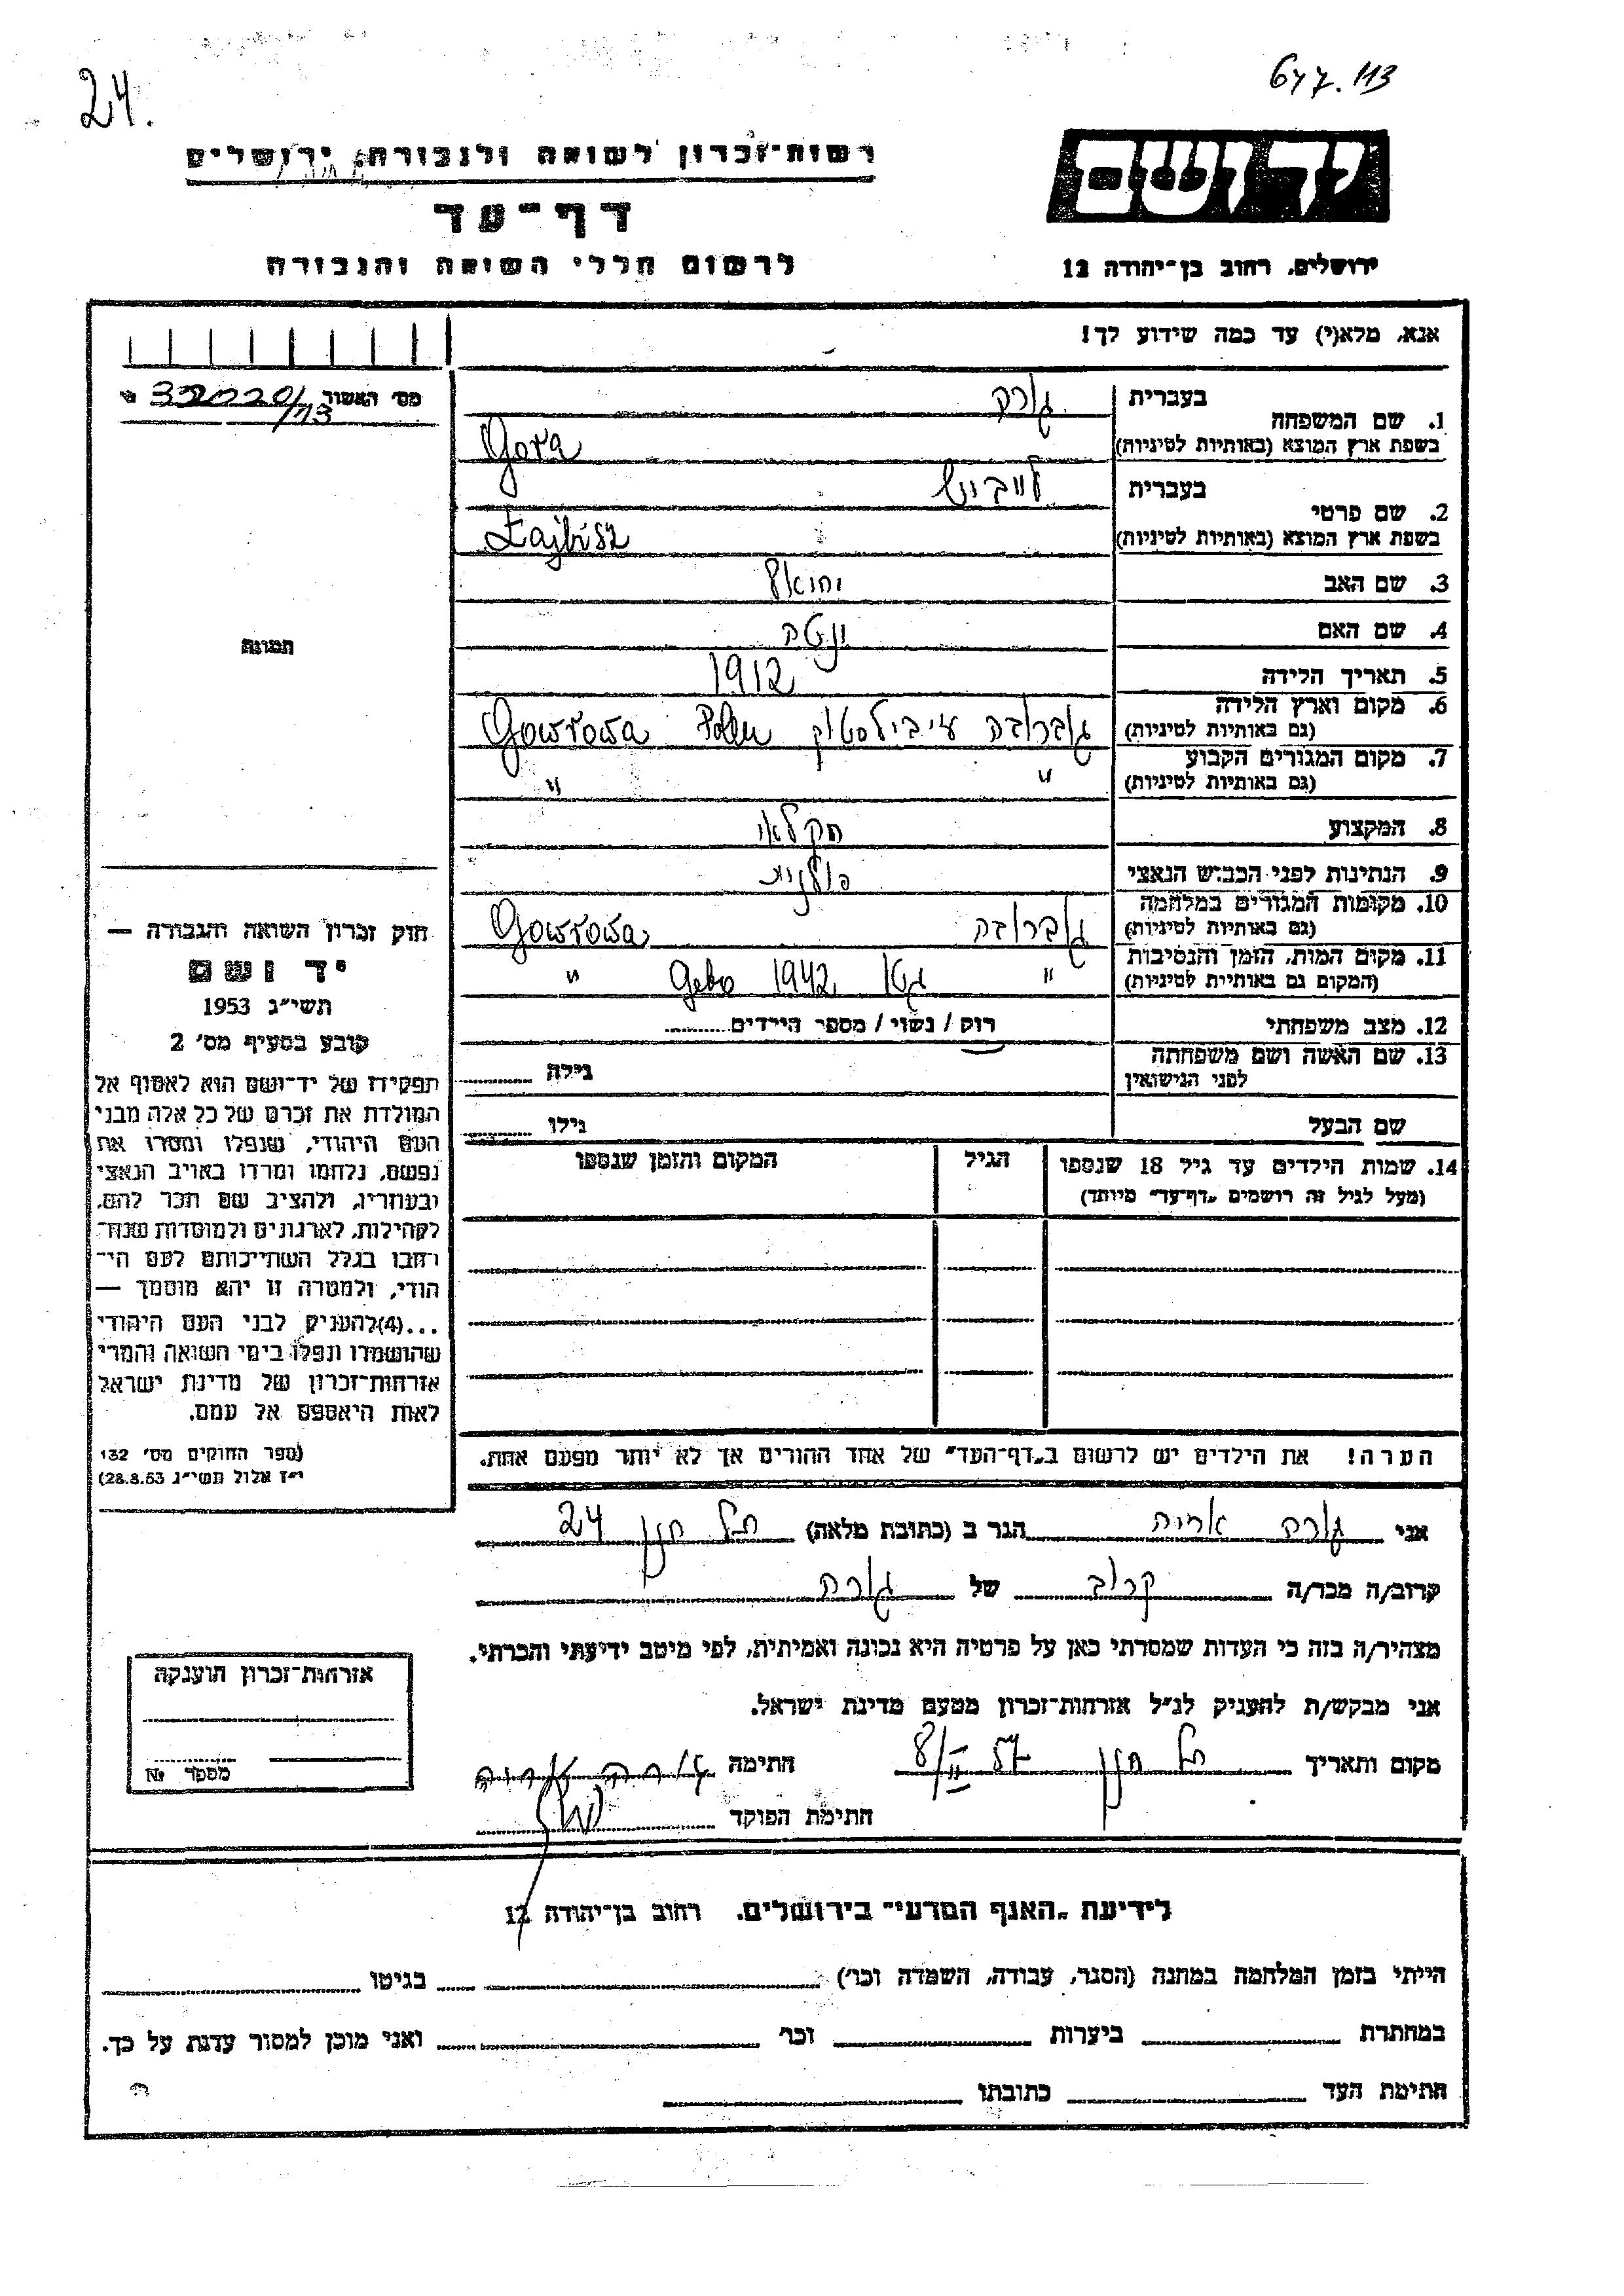 24.
677.113
רשות-זכרון לשואה ולגבורה, ירושלים
יד ושם
דף-עד
לרשום חללי השואה והגבורה
ירושלים, רחוב בן-יהודה 12
אנא, מלא(י) עד כמה שידוע לך!
מס' האשור 332020/13
1. שם המשפחה
בעברית גורה
בשפת ארץ המוצא (באותיות לטיניות) Gora
2. שם פרטי
בעברית לייביש
בשפת ארץ המוצא (באותיות לטיניות) Łajbisz
3. שם האב יחיאל
4. שם האם יטה
5. תאריך הלידה 1912
6. מקום וארץ הלידה
(גם באותיות לטיניות) גוברובה ע״י בילסטוק Polen Goworowa
7. מקום המגורים הקבוע
(גם באותיות לטיניות) " "
8. המקצוע חקלאי
9. הנתינות לפני הכבוש הנאצי פולנית
10. מקומות המגורים במלחמה
(גם באותיות לטיניות) גוברובה Goworowa
11. מקום המות, הזמן והנסיבות
(המקום גם באותיות לטיניות) " גטו 1942 Geto "
12. מצב משפחתי רוק / נשוי / מספר הילדים
13. שם האשה ושם משפחתה
לפני הנישואין גילה
שם הבעל גילו
14. שמות הילדים עד גיל 18 שנספו הגיל המקום והזמן שנספו
(מעל לגיל זה רושמים „דף-עד" מיוחד)
תמונה
חוק זכרון השואה והגבורה —
יד ושם
תשי״ג 1953
קובע בסעיף מס' 2
תפקידו של יד-ושם הוא לאסוף אל
המולדת את זכרם של כל אלה מבני
העם היהודי, שנפלו ומסרו את
נפשם, נלחמו ומרדו באויב הנאצי
ובעוזריו, ולהציב שם וזכר להם,
לקהילות, לארגונים ולמוסדות שנח-
רבו בגלל השתייכותם לעם הי-
הודי, ולמטרה זו יהא מוסמך —
...(4)להעניק לבני העם היהודי
שהושמדו ונפלו בימי השואה והמרי
אזרחות-זכרון של מדינת ישראל
לאות היאספם אל עמם.
(ספר החוקים מס' 132
י״ז אלול תשי״ג 28.8.53)
הערה! את הילדים יש לרשום ב„דף-העד" של אחד ההורים אך לא יותר מפעם אחת.
אני גורה אריה הגר ב (כתובת מלאה) תל חנן 24
קרוב/ה מכר/ה קרוב של גורה
מצהיר/ה בזה כי העדות שמסרתי כאן על פרטיה היא נכונה ואמיתית, לפי מיטב ידיעתי והכרתי.
אני מבקש/ת להעניק לנ״ל אזרחות-זכרון מטעם מדינת ישראל.
מקום ותאריך תל חנן 8/II 57 חתימה גורה אריה
חתימת הפוקד
אזרחות-זכרון הוענקה
מספר №
לידיעת „האגף המדעי" בירושלים. רחוב בן-יהודה 12
הייתי בזמן המלחמה במחנה (הסגר, עבודה, השמדה וכו') בגיטו
במחתרת ביערות וכו' ואני מוכן למסור עדות על כך.
חתימת העד כתובתו